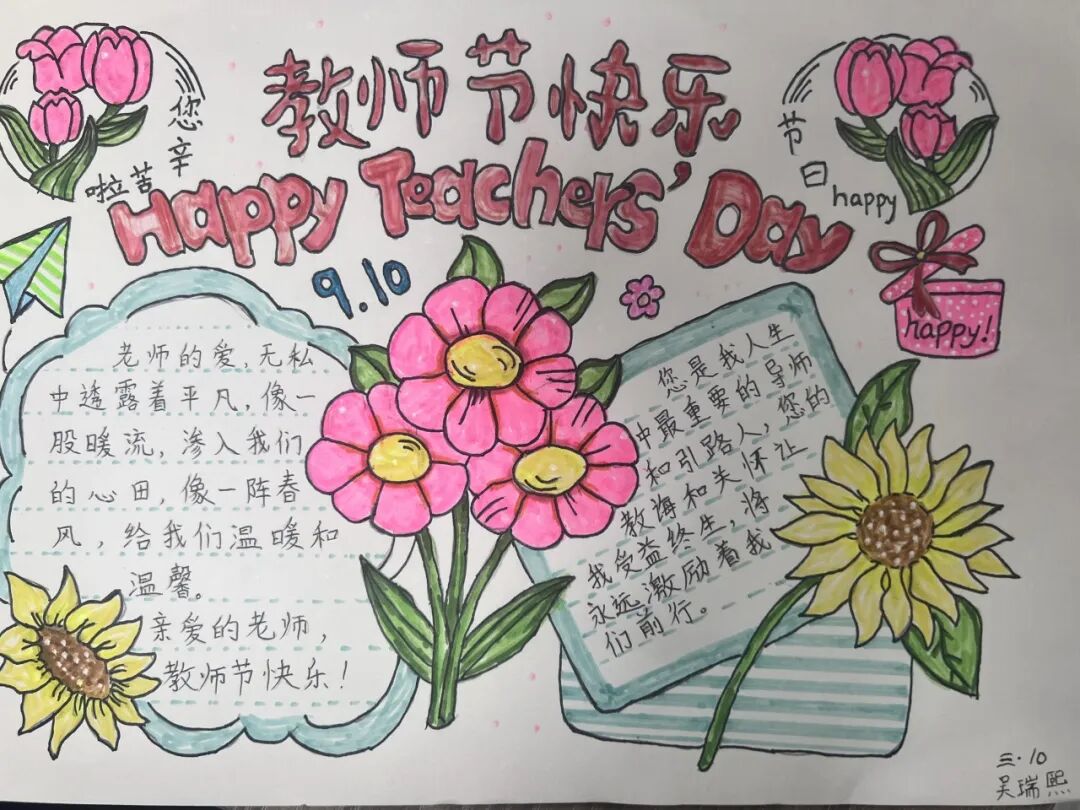 教师节快乐
Happy Teachers' Day
您辛
苦啦
节日
happy
9.10
happy!
老师的爱,无私
中透露着平凡,像一
股暖流,渗入我们
的心田,像一阵春
风,给我们温暖和
温馨。
亲爱的老师,
教师节快乐!
您是我人生
中最重要的导师
和引路人,您的
教诲和关怀让
我受益终生,将
永远激励着我
们前行。
三·10
吴瑞熙